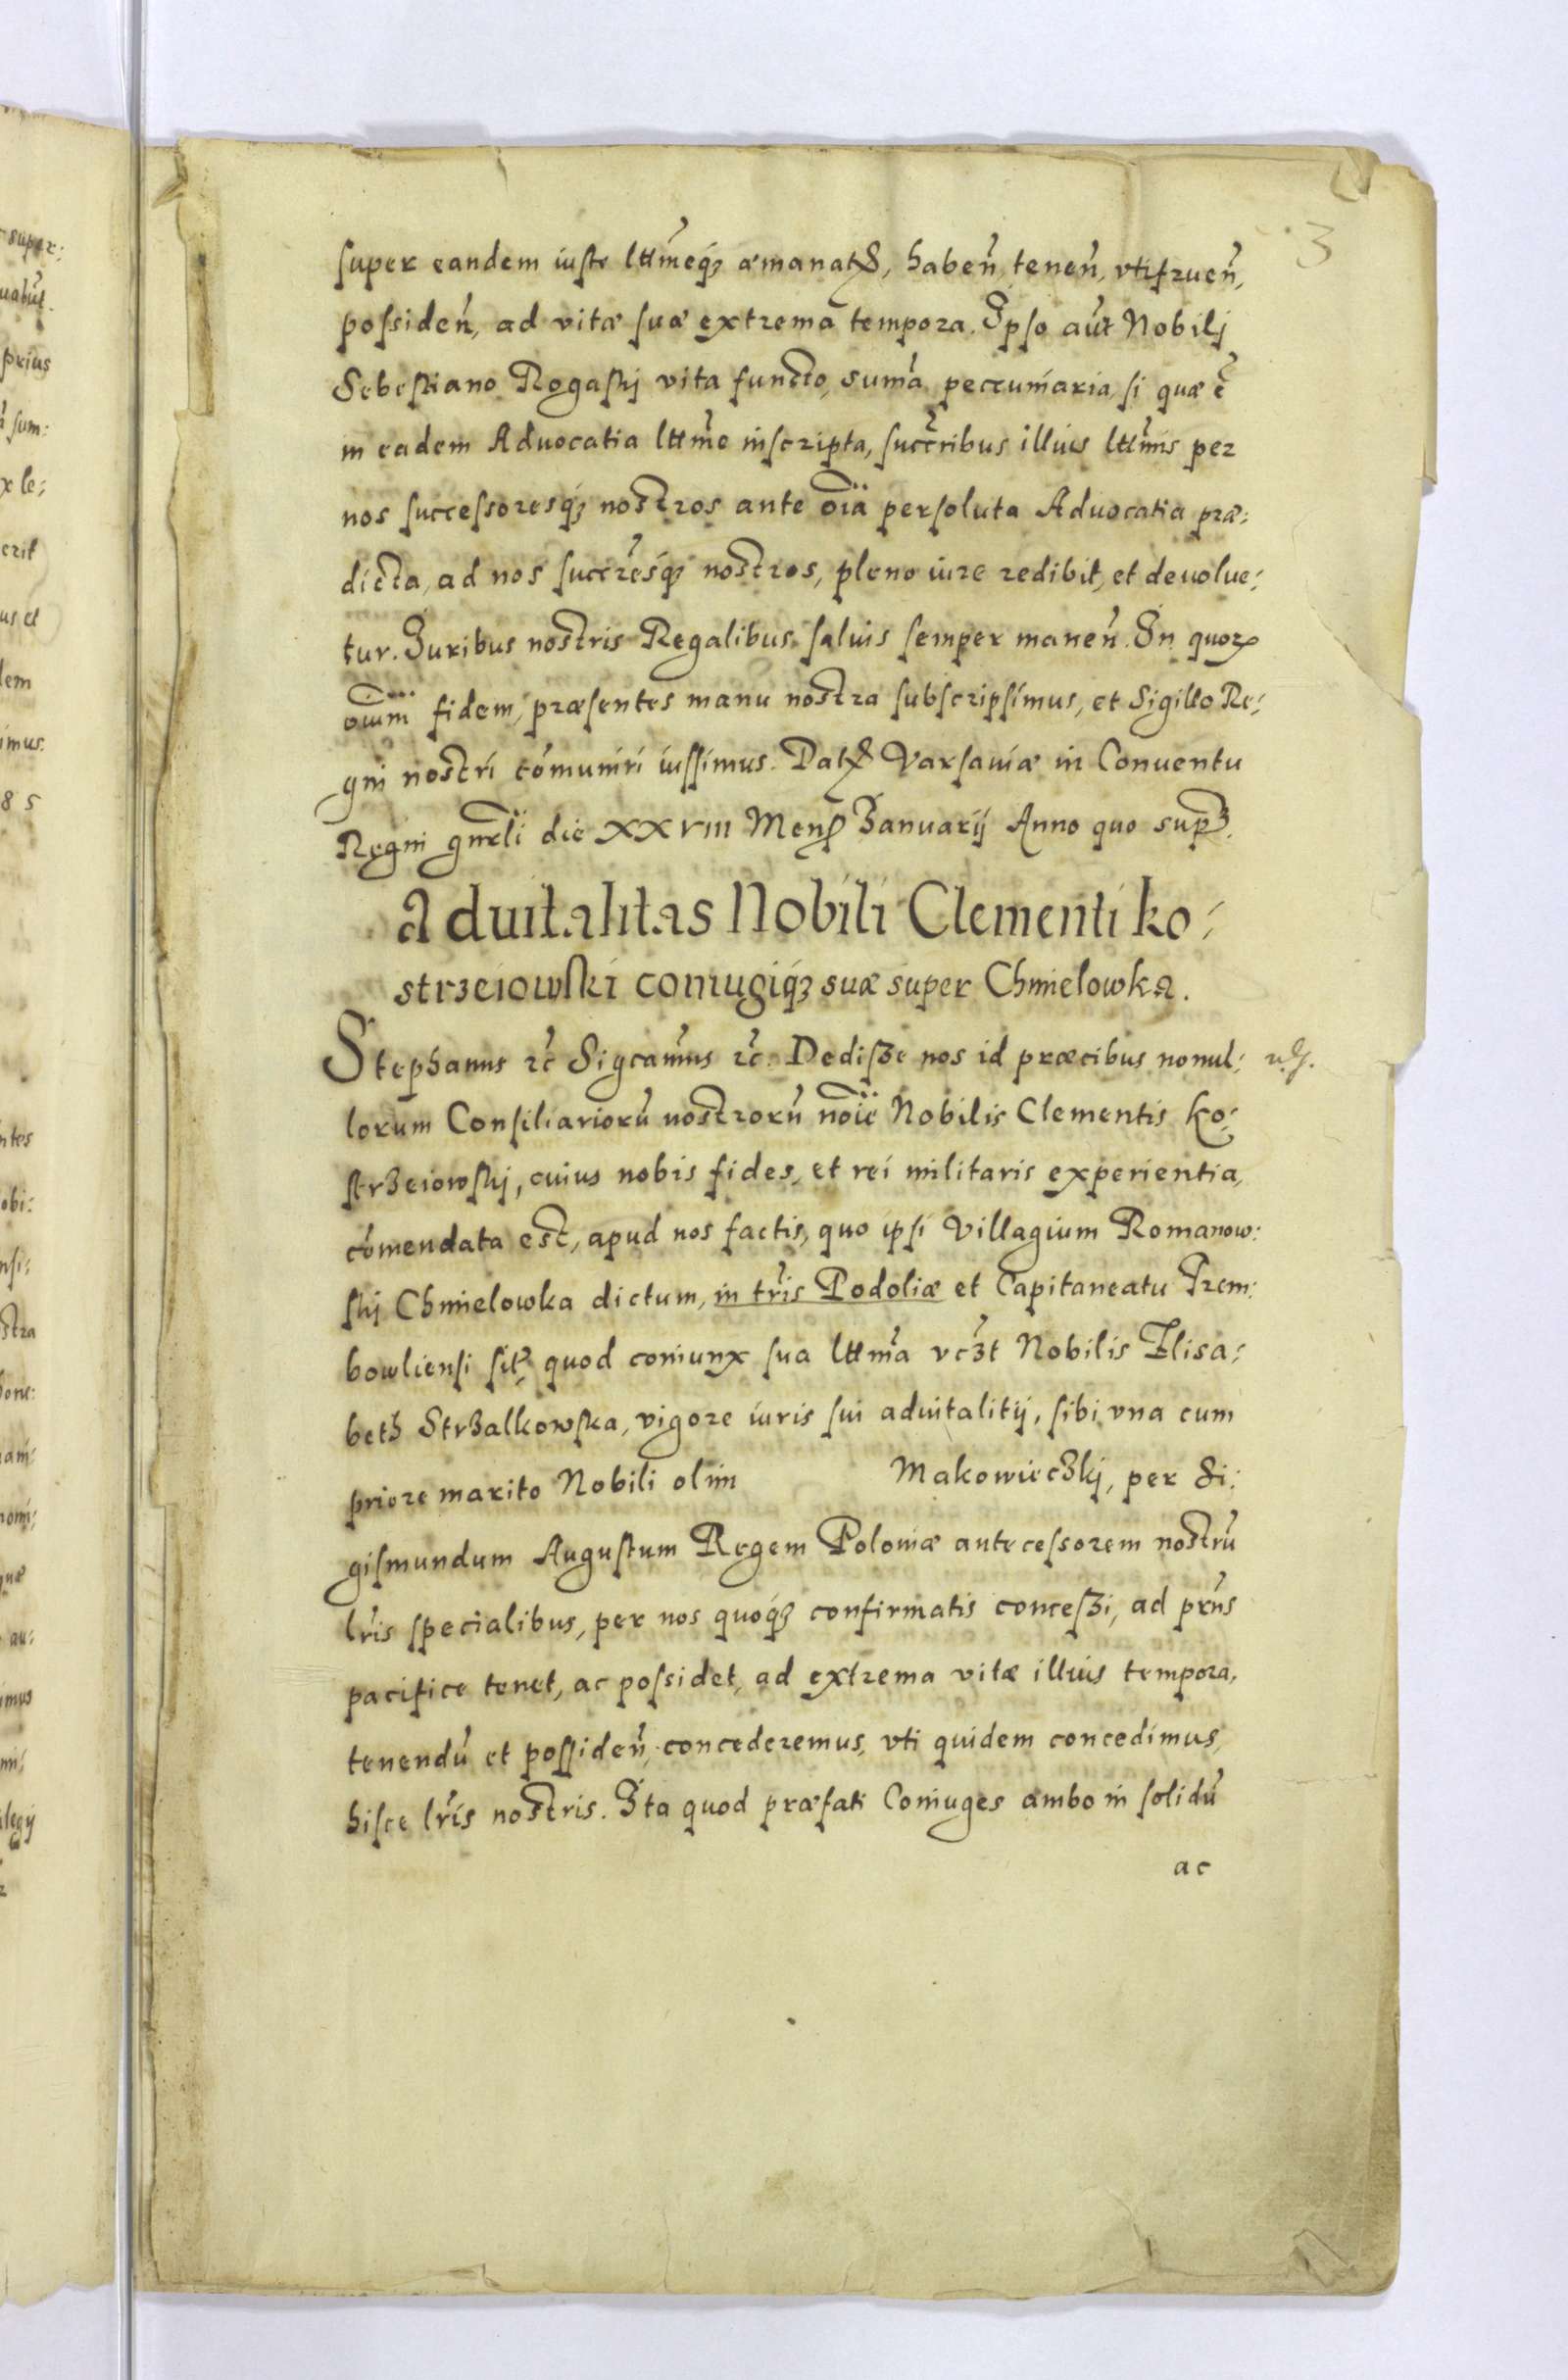 3
super eandem iuste lttmeq₃ æmanatꝭ, haben̄, tenen̄, vtifruen̄,
possiden̄, ad vitæ suæ extrema tempora. Ipso aūt Nobilj
Sebestiano Rogaskj vita functo, sum̄a pecuniaria, si quæ ē
in eadem Aduocatia lttm̄e inscripta, succr̄ibus illius lttm̄is per
nos successoresq₃ nostros ante oīa persoluta Aduocatia præ:
dicta, ad nos succr̄esq₃ nostros, pleno iure redibit, et deuolue:
tur. Iuribus nostris Regalibus saluis semper manen̄. In quorꝝ
oīum fidem, præsentes manu nostra subscripsimus, et Sigillo Re:
gni nostri com̄uniri iussimus. Datꝭ Varsauiæ in Conuentu
Regni gnr̄li die XXVIII Mensꝭ Januarij Anno quo supꝛ.
Aduitalitas Nobili Clementi ko:
strzeiowski coniugiq₃ suæ super Chmielowka.
Stephanus ꝛc̄ Sigcam̄us ꝛc̄. Dedisze nos id præcibus nonul:
lorum Consiliariorū nostrorū noīe Nobilis Clementis Ko:
strzeiowskj, cuius nobis fides, et rei militaris experientia,
com̄endata est, apud nos factis, quo ipsi Villagium Romanow:
skj Chmielowka dictum, in tr̄is Podoliæ et Capitaneatu Trem:
bowliensi sitꝭ, quod coniunx sua lttm̄a vcz̄t Nobilis Elisa:
beth Strzalkowska, vigore iuris sui aduitalitij, sibi vna cum
priore marito Nobili olim Makowieczkj, per Si:
gismundum Augustum Regem Poloniæ antecessorem nostrū
lr̄is specialibus, per nos quoq₃ confirmatis conceszi, ad prn̄s
pacifice tenet, ac possidet, ad extrema vitæ illius tempora,
tenendū et possiden̄, concederemus, vti quidem concedimus,
hisce lr̄is nostris. Ita quod præfati Coniuges ambo in solidū
ac